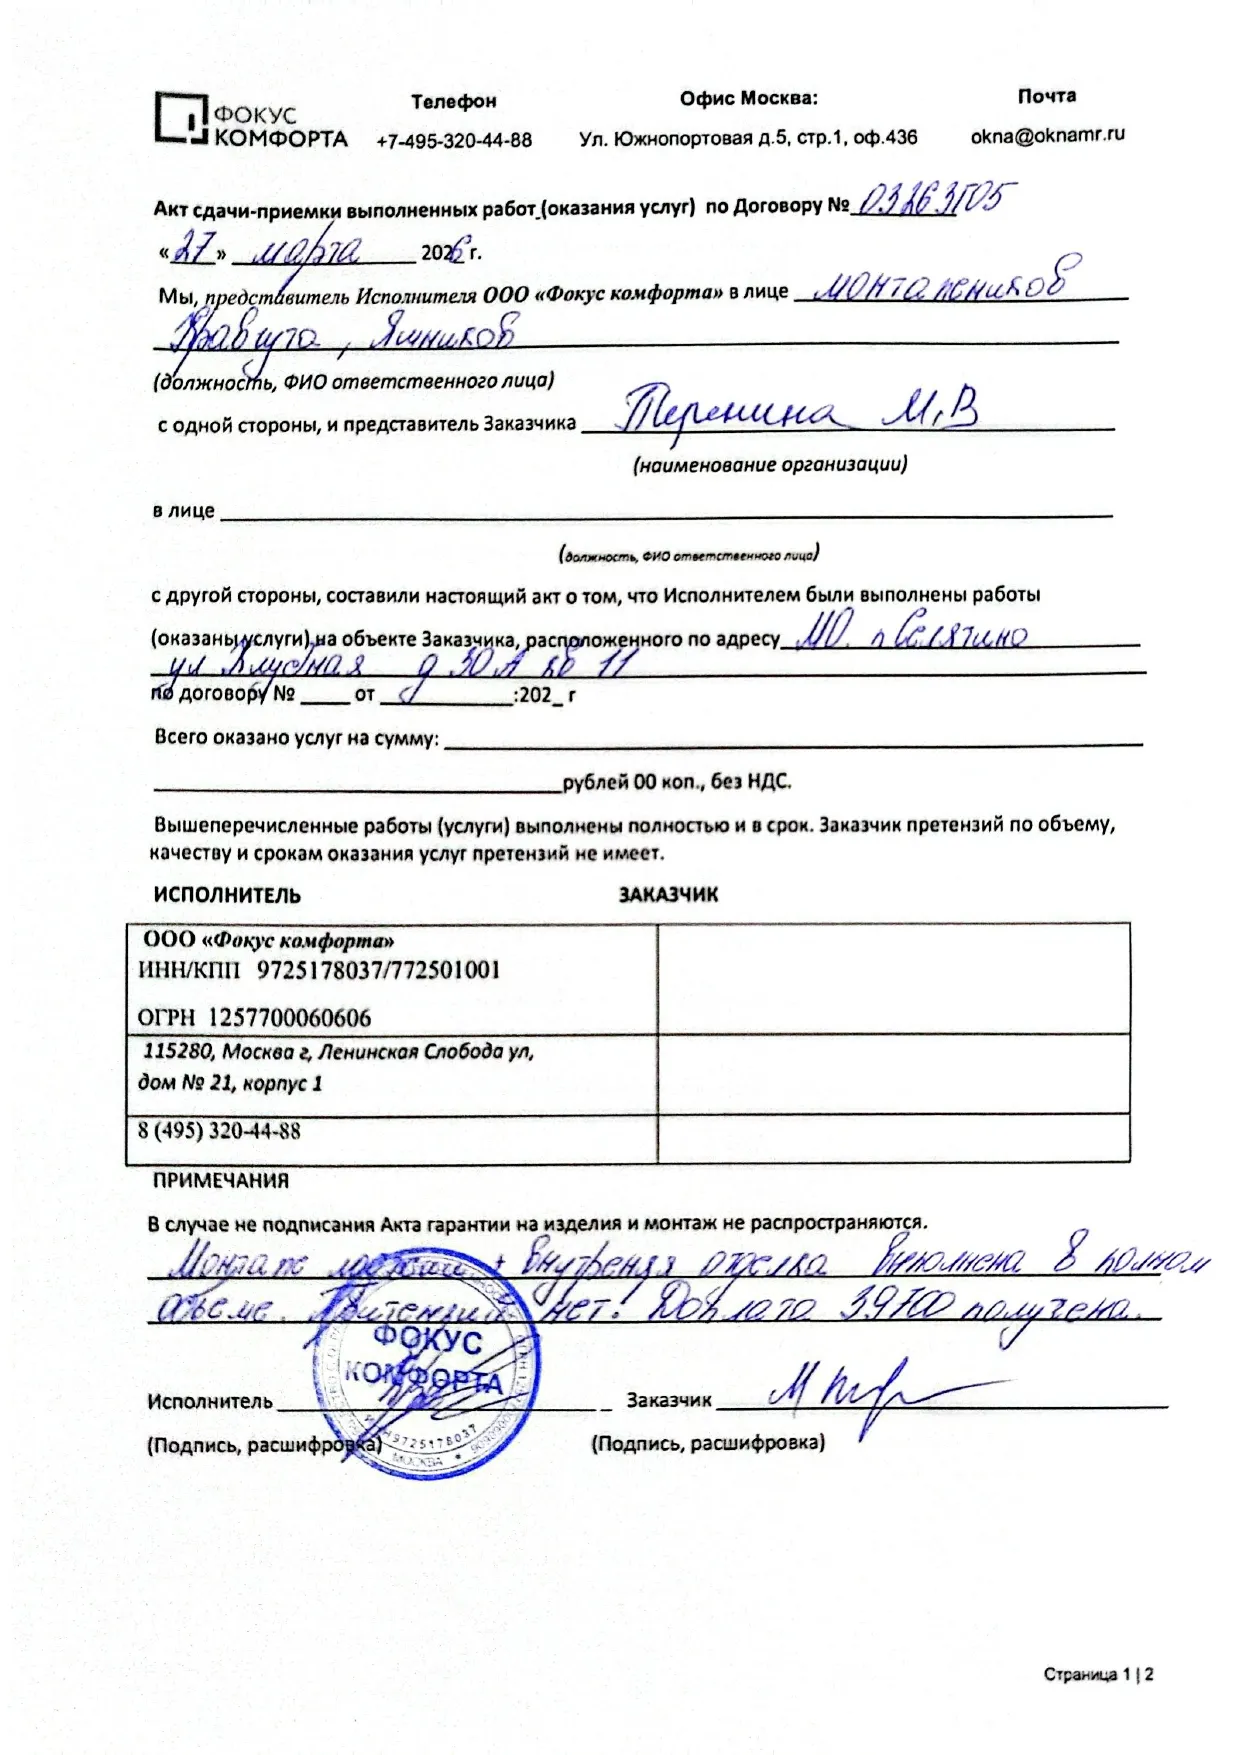 ФОКУС КОМФОРТА
Телефон
+7-495-320-44-88
Офис Москва:
Ул. Южнопортовая д.5, стр.1, оф.436
Почта
okna@oknamr.ru
Акт сдачи-приемки выполненных работ (оказания услуг) по Договору №
«27» марта 2026 г.
Мы, представитель Исполнителя ООО «Фокус комфорта» в лице монтажников
Кравчута, Ямников
(должность, ФИО ответственного лица)
с одной стороны, и представитель Заказчика Теренина М.В
(наименование организации)
в лице
(должность, ФИО ответственного лица)
с другой стороны, составили настоящий акт о том, что Исполнителем были выполнены работы
(оказаны услуги) на объекте Заказчика, расположенного по адресу МО. п Селятино
ул Клубная д 30А кв 11
по договору № ____ от ____________:202_ г
Всего оказано услуг на сумму:
рублей 00 коп., без НДС.
Вышеперечисленные работы (услуги) выполнены полностью и в срок. Заказчик претензий по объему,
качеству и срокам оказания услуг претензий не имеет.
ИСПОЛНИТЕЛЬ ЗАКАЗЧИК
ООО «Фокус комфорта»
ИНН/КПП 9725178037/772501001
ОГРН 1257700060606
115280, Москва г, Ленинская Слобода ул,
дом № 21, корпус 1
8 (495) 320-44-88
ПРИМЕЧАНИЯ
В случае не подписания Акта гарантии на изделия и монтаж не распространяются.
Монтаж лоджии + Внутреняя отделка выполнена в полном
объеме. Притензий нет! Доплата 39700 получена.
ФОКУС
КОМФОРТА
Исполнитель Заказчик
(Подпись, расшифровка) (Подпись, расшифровка)
ИНН9725178037
МОСКВА
Страница 1 | 2